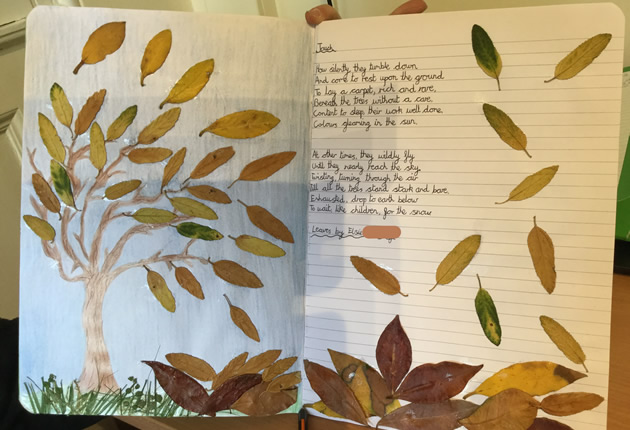 Josh
How silently they tumble down
And come to rest upon the ground
To lay a carpet, rich and rare,
Beneath the trees without a care,
Content to sleep, their work well done,
Colours gleaming in the sun.
At other times, they wildly fly
Until they nearly reach the sky.
Twisting, turning through the air
Till all the trees stand stark and bare.
Exhausted, drop to earth below
To wait, like children, for the snow.
Leaves by Elsie